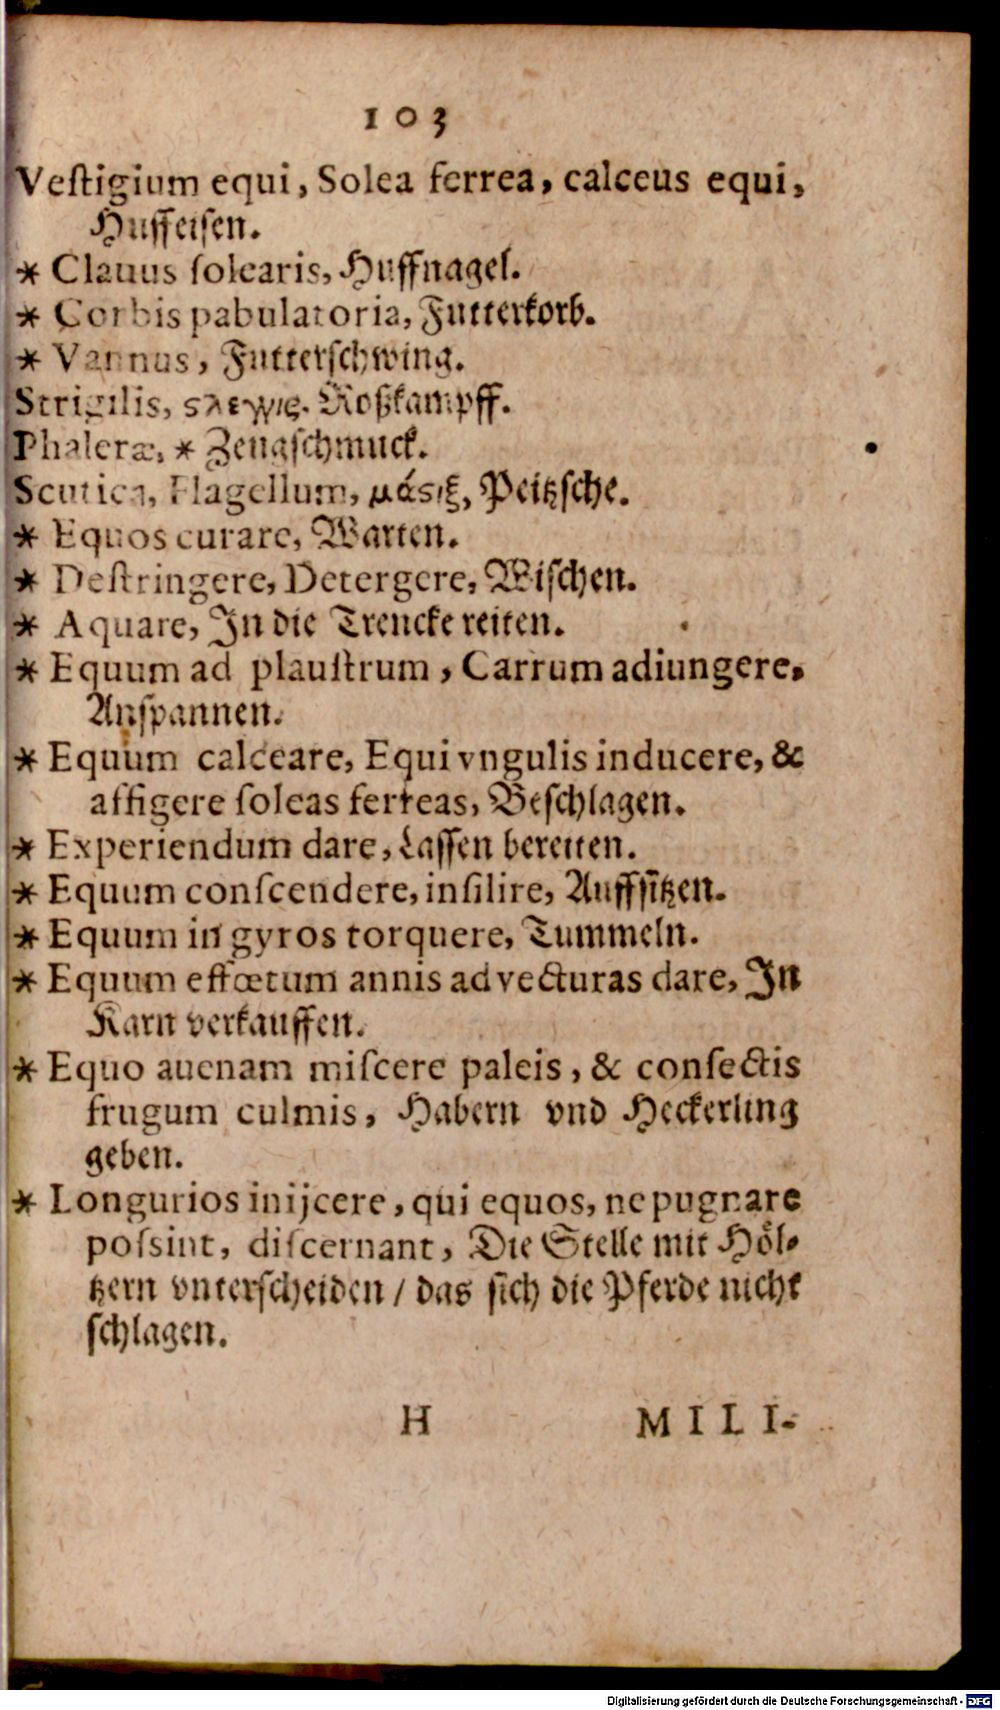 103
Vestigium equi, Solea ferrea, calceus equi,
Huffeisen.
* Clauus solearis, Huffnagel.
* Corbis pabulatoria, Futterkorb.
* Vannus, Futterschwing.
Strigilis, ςλεγγις. Roßkampff.
Phaleræ, * Zeugschmuck.
Scutica, Flagellum, μάςιξ, Peitzsche.
* Equos curare, Warten.
* Destringere, Detergere, Wischen.
* Aquare, In die Trencke reiten.
* Equum ad plaustrum, Carrum adiungere,
Anspannen.
* Equum calceare, Equi vngulis inducere, &
affigere soleas ferreas, Beschlagen.
* Experiendum dare, Lassen bereiten.
* Equum conscendere, insilire, Auffsitzen.
* Equum in gyros torquere, Tummeln.
* Equum effœtum annis ad vecturas dare, In
Karn verkauffen.
* Equo auenam miscere paleis, & consectis
frugum culmis, Habern vnd Heckerling
geben.
* Longurios inijcere, qui equos, ne pugnare
possint, discernant, Die Stelle mit Höl-
tzern vnterscheiden / das sich die Pferde nicht
schlagen.
H MILI-
Digitalisierung gefördert durch die Deutsche Forschungsgemeinschaft - DFG